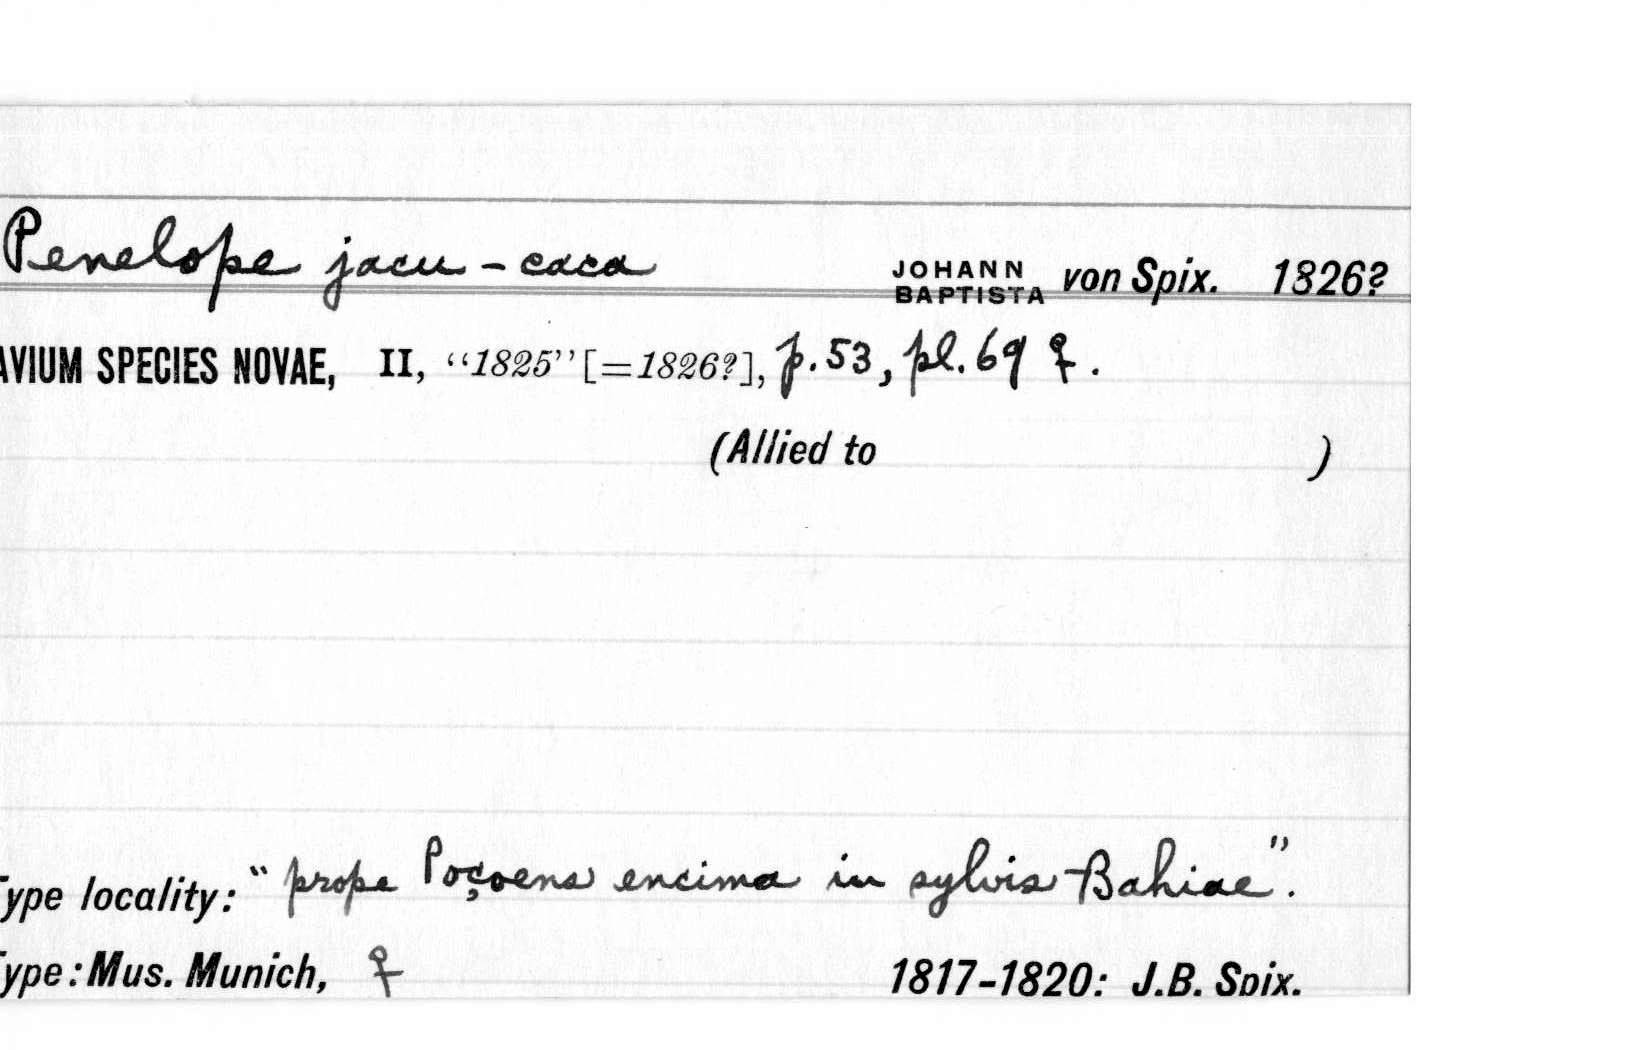 Penelope jacu-caca JOHANN BAPTISTA von Spix. 1826?
AVIUM SPECIES NOVAE, II, “1825” [=1826?], p.53, pl.69 ♀.
(Allied to )
Type locality: “prope Poçoens encima in sylvis Bahiae”.
Type: Mus. Munich, ♀ 1817-1820: J.B. Spix.